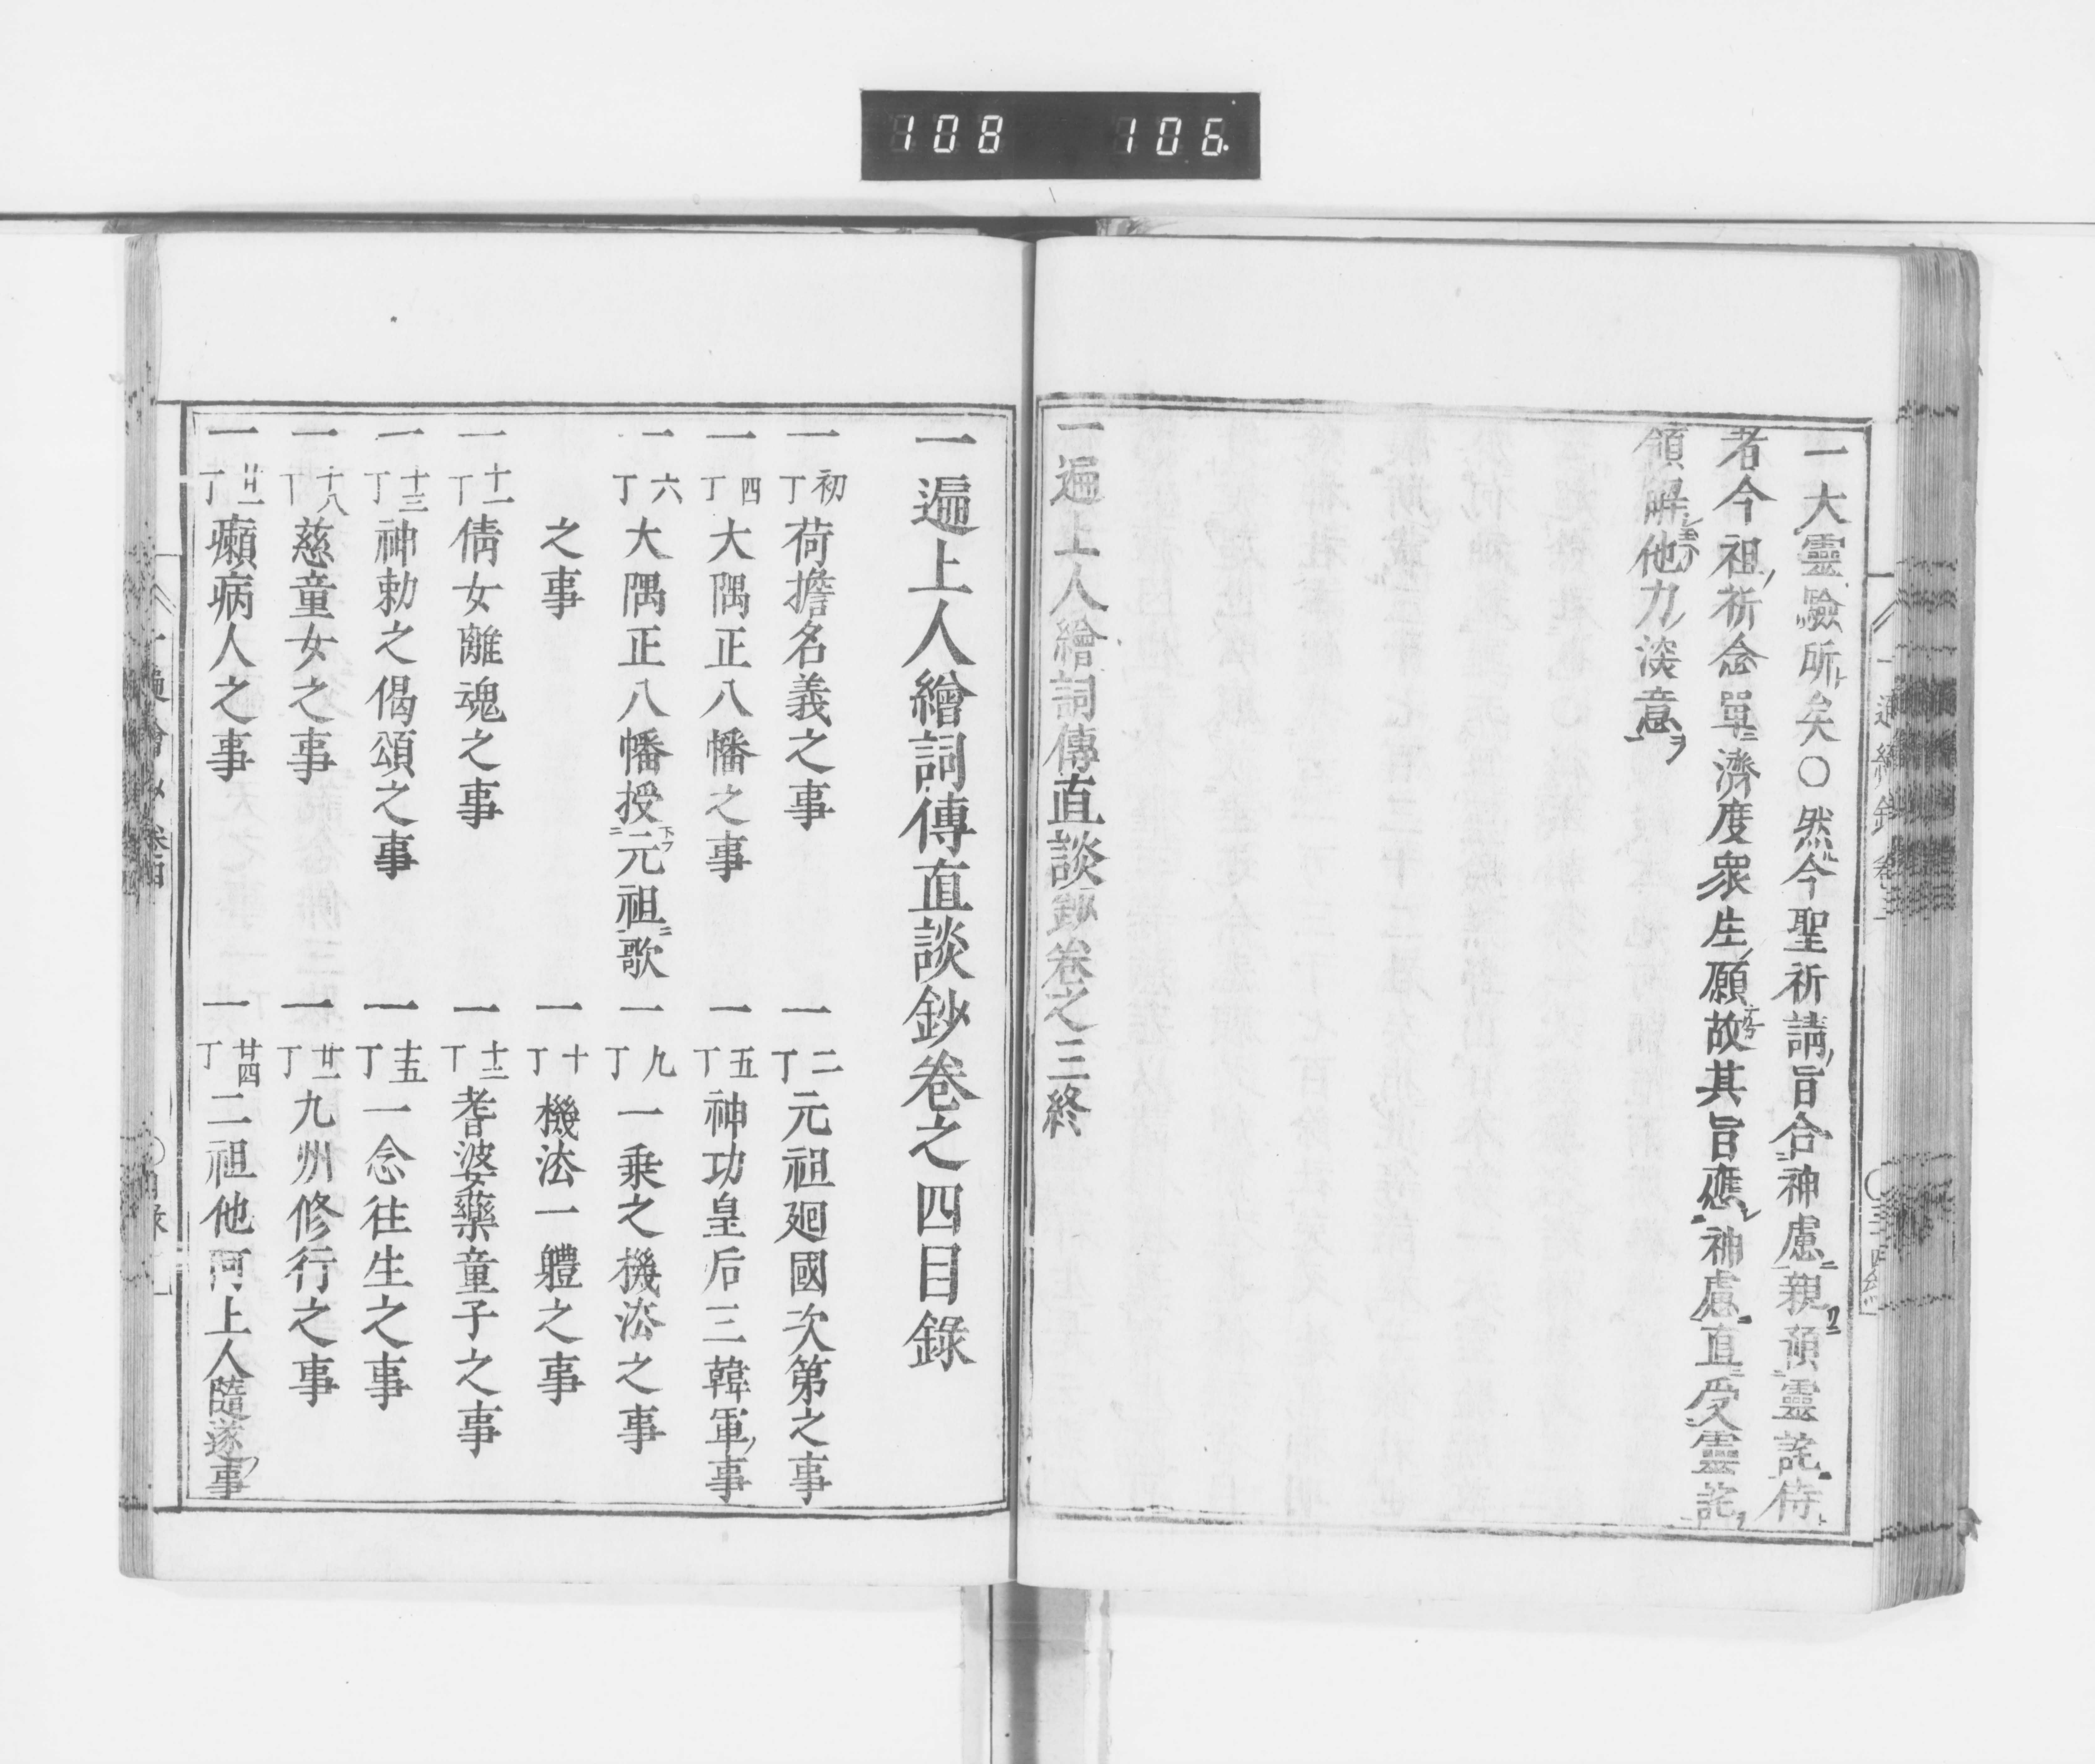 108 106
一大靈驗所矣〇然今聖祈請旨合神慮親預靈託侍
者今祖祈念單濟度衆生願故其旨應神慮直受靈託
領解他力深意
一遍上人繪詞傳直談鈔卷之三終
一遍上人繪詞傳直談鈔卷之四目錄
一 初丁 荷擔名義之事
一 二丁 元祖廻國次第之事
一 四丁 大隅正八幡之事
一 五丁 神功皇后三韓軍ノ事
一 六丁 大隅正八幡授元祖歌
一 九丁 一乗之機法之事
之事
一 十丁 機法一體之事
一 十一丁 倩女離魂之事
一 十二丁 耆婆藥童子之事
一 十三丁 神勅之偈頌之事
一 十五丁 一念往生之事
一 十八丁 慈童女之事
一 廿一丁 九州修行之事
一 廿一丁 癩病人之事
一 廿四丁 二祖他阿上人隨逐ノ事